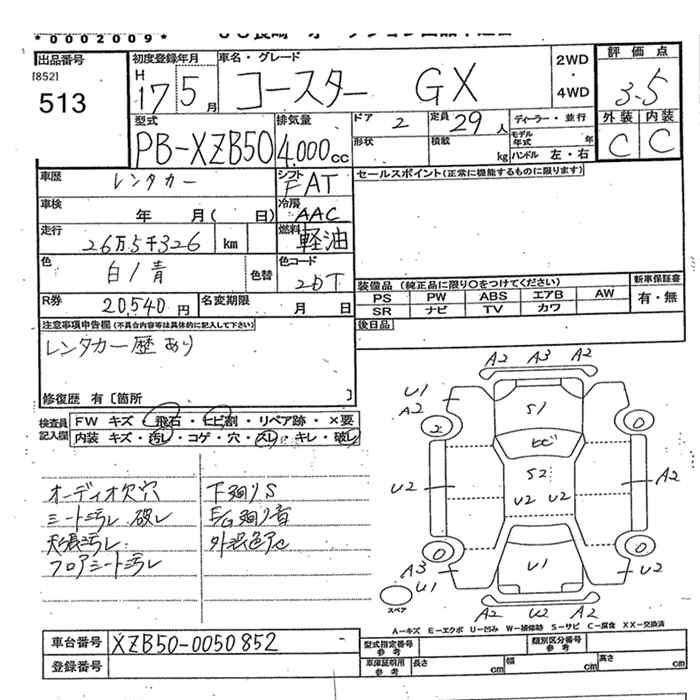 *0002009*
出品番号
[852]
513
初度登録年月
H
17 5月
車名・グレード
コースター GX
2WD
・
4WD
評価点
3.5
外装 内装
C C
型式
PB-XZB50
排気量
4,000cc
ドア 2
定員 29人
ディーラー・並行
形状
積載 kg
モデル年式 年
ハンドル 左・右
車歴
レンタカー
シフト
FAT
車検
年 月( 日)
冷房
AAC
走行
26万5千326 km
燃料
軽油
色
白/青
色替
色コード
2DT
R券
20,540円
名変期限
月 日
セールスポイント(正常に機能するものに限ります)
装備品(純正品に限り○をつけてください)
PS PW ABS エアB AW
SR ナビ TV カワ
新車保証書
有・無
後日品
注意事項申告欄(不具合内容等は具体的に記入して下さい)
レンタカー歴あり
修復歴 有〔箇所 〕
検査員
記入欄
FW キズ・飛石・ヒビ割・リペア跡・×要
内装 キズ・汚レ・コゲ・穴・スレ・キレ・破レ
オーディオ欠穴
シート汚レ 破レ
天張汚レ
フロアシート汚レ
下廻りS
E/G廻り音
外装色アセ
A2 A3 A2
U1
A2
S1
2 0
ヒビ
S2
U2 U2 U2 A2
0 0
A3
U1
U1 U2
A2 U2 A2
スペア
A−キズ E−エクボ U−凹み W−補修跡 S−サビ C−腐食 XX−交換済
車台番号
XZB50-0050852
登録番号
型式指定番号
参考
類別区分番号
参考
車庫証明用
参考
長さ cm 幅 cm 高さ cm